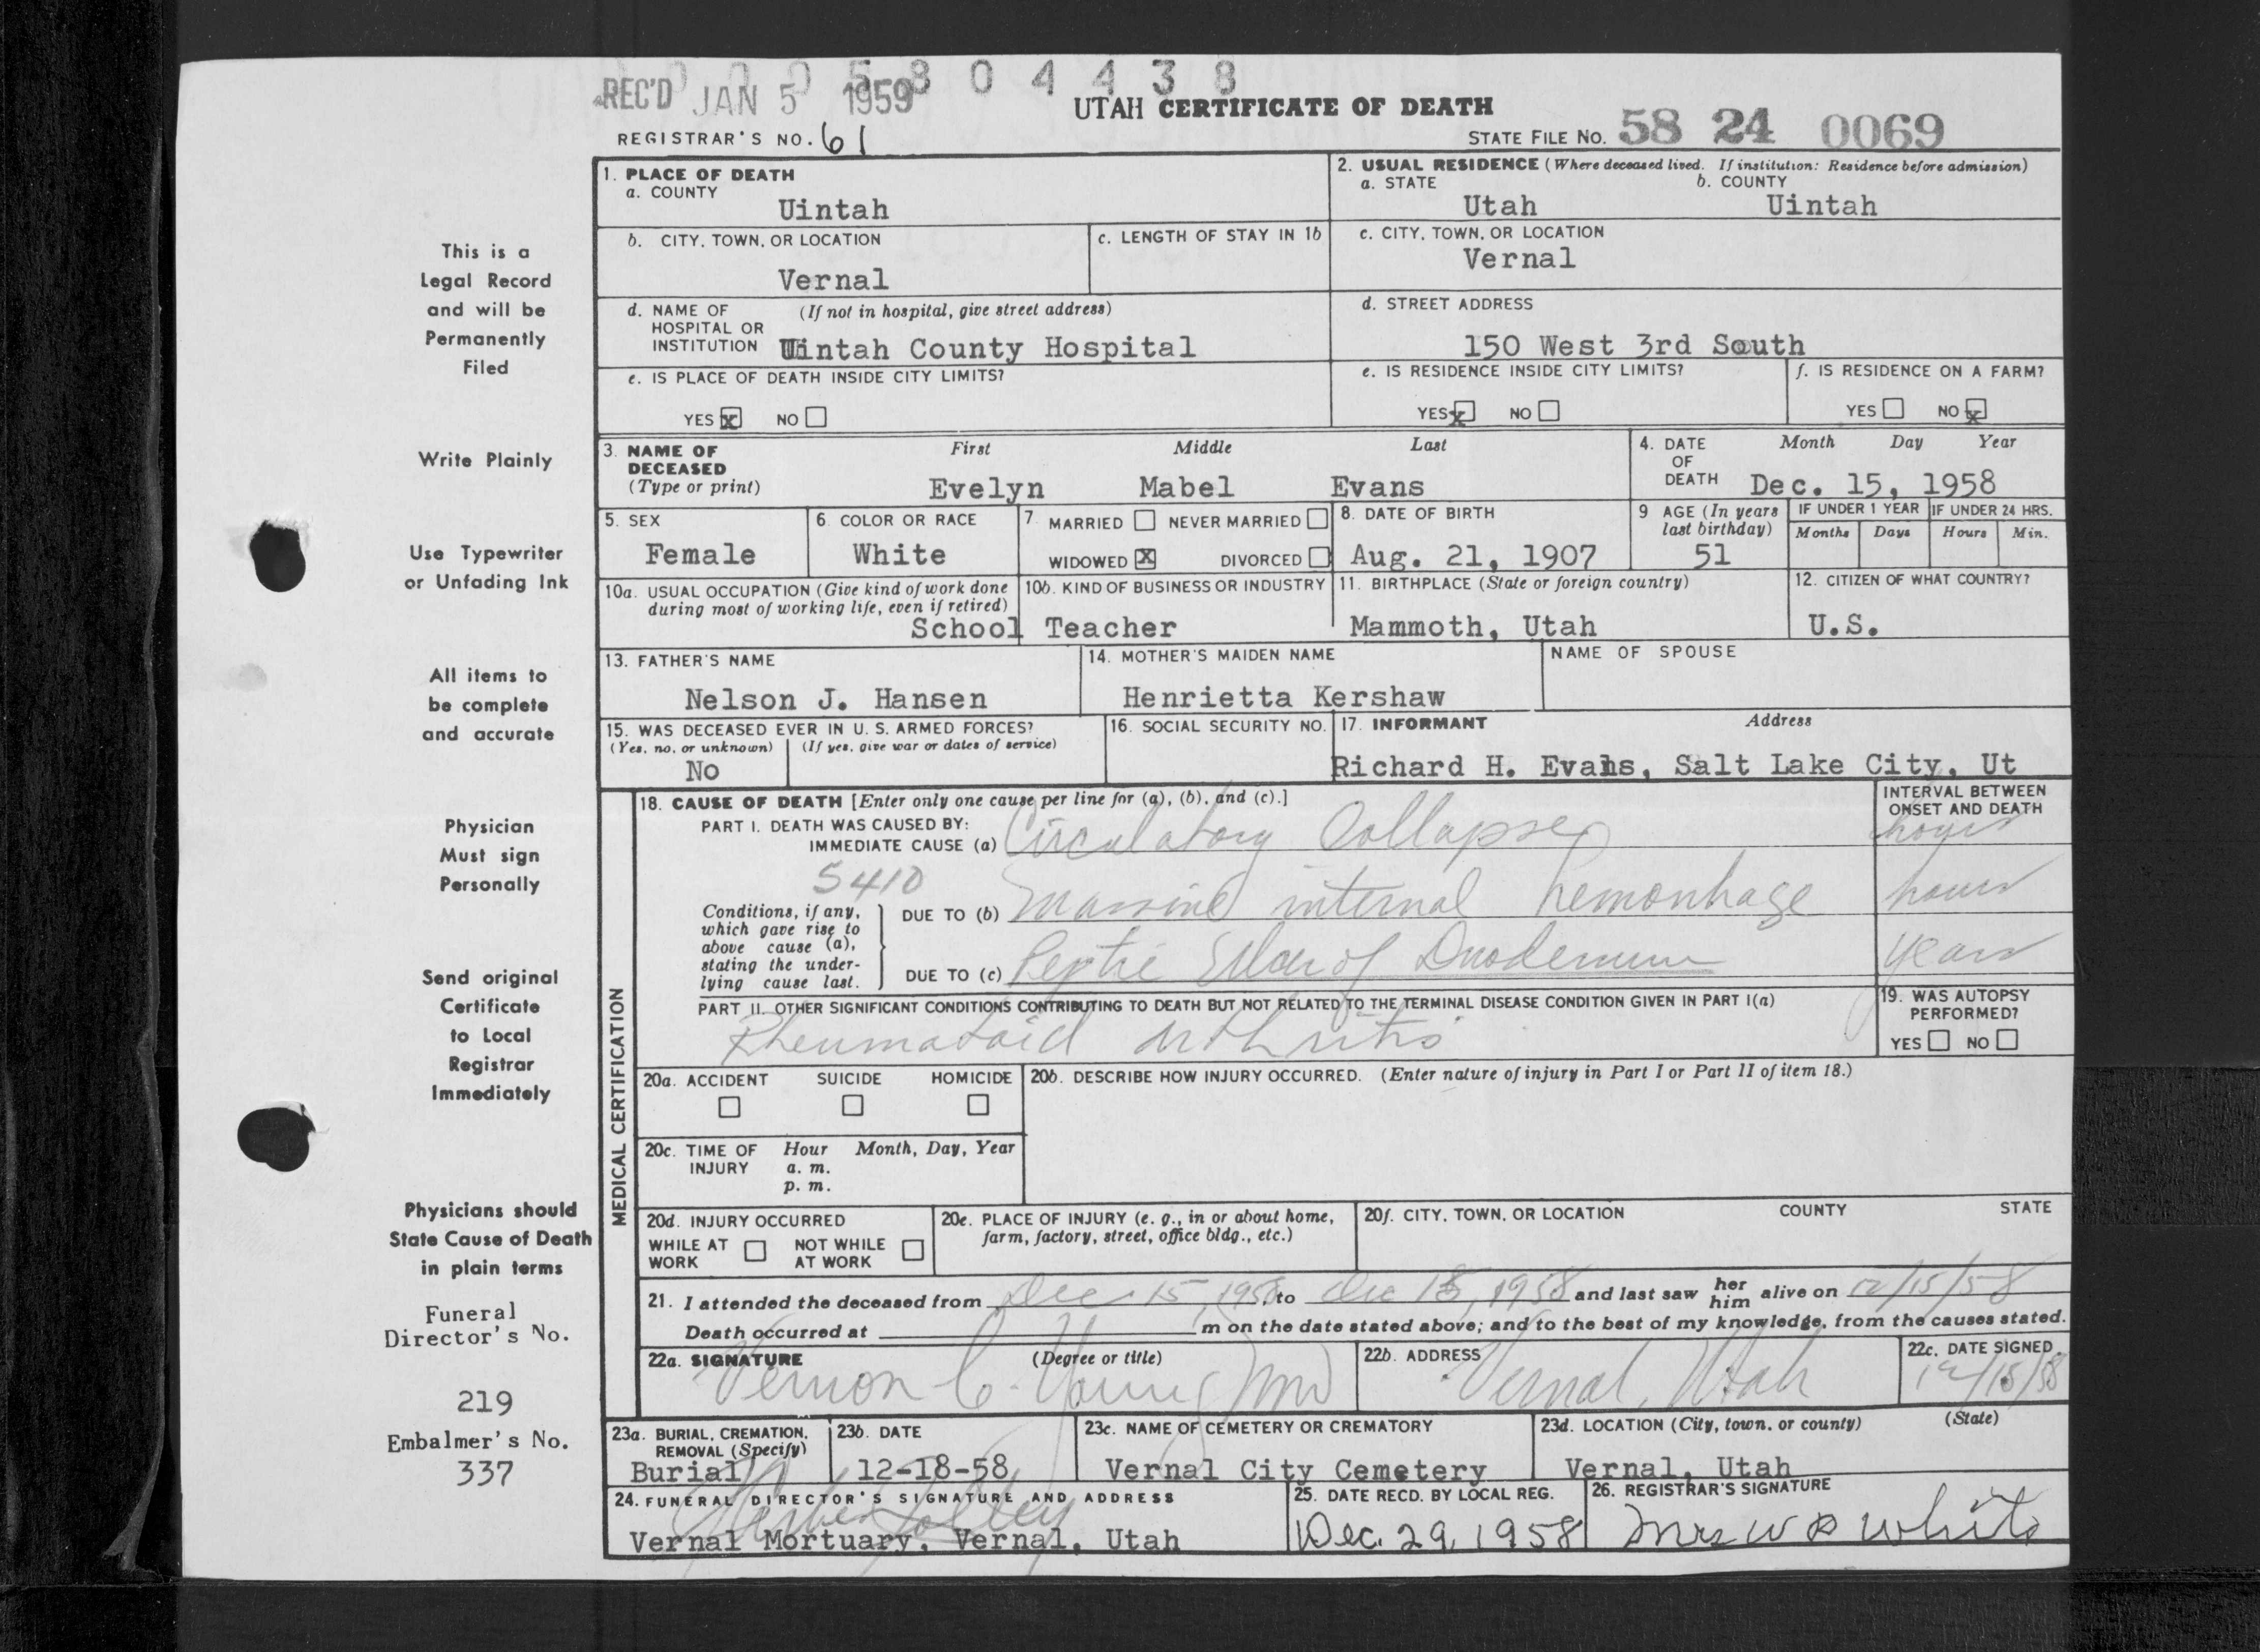 REC'D JAN 5 1959
5 8 0 4 4 3 8
UTAH CERTIFICATE OF DEATH
REGISTRAR'S NO. 61
STATE FILE NO. 58 24 0069
This is a
Legal Record
and will be
Permanently
Filed
Write Plainly
Use Typewriter
or Unfading Ink
All items to
be complete
and accurate
Physician
Must sign
Personally
Send original
Certificate
to Local
Registrar
Immediately
Physicians should
State Cause of Death
in plain terms
Funeral
Director's No.
219
Embalmer's No.
337
1. PLACE OF DEATH
a. COUNTY
Uintah
2. USUAL RESIDENCE (Where deceased lived. If institution: Residence before admission)
a. STATE b. COUNTY
Utah Uintah
b. CITY, TOWN, OR LOCATION
Vernal
c. LENGTH OF STAY IN 1b
c. CITY, TOWN, OR LOCATION
Vernal
d. NAME OF (If not in hospital, give street address)
HOSPITAL OR
INSTITUTION Uintah County Hospital
d. STREET ADDRESS
150 West 3rd South
e. IS PLACE OF DEATH INSIDE CITY LIMITS?
YES x NO
e. IS RESIDENCE INSIDE CITY LIMITS?
YES x NO
f. IS RESIDENCE ON A FARM?
YES NO x
3. NAME OF First Middle Last
DECEASED
(Type or print) Evelyn Mabel Evans
4. DATE Month Day Year
OF
DEATH Dec. 15, 1958
5. SEX
Female
6. COLOR OR RACE
White
7. MARRIED NEVER MARRIED
WIDOWED X DIVORCED
8. DATE OF BIRTH
Aug. 21, 1907
9 AGE (In years
last birthday)
51
IF UNDER 1 YEAR IF UNDER 24 HRS.
Months Days Hours Min.
10a. USUAL OCCUPATION (Give kind of work done
during most of working life, even if retired)
10b. KIND OF BUSINESS OR INDUSTRY
School Teacher
11. BIRTHPLACE (State or foreign country)
Mammoth, Utah
12. CITIZEN OF WHAT COUNTRY?
U.S.
13. FATHER'S NAME
Nelson J. Hansen
14. MOTHER'S MAIDEN NAME
Henrietta Kershaw
NAME OF SPOUSE
15. WAS DECEASED EVER IN U. S. ARMED FORCES?
(Yes, no, or unknown) (If yes, give war or dates of service)
No
16. SOCIAL SECURITY NO.
17. INFORMANT Address
Richard H. Evans, Salt Lake City, Ut
MEDICAL CERTIFICATION
18. CAUSE OF DEATH [Enter only one cause per line for (a), (b), and (c).]
INTERVAL BETWEEN
ONSET AND DEATH
PART I. DEATH WAS CAUSED BY:
IMMEDIATE CAUSE (a) Circulatory Collapse hours
5410
Conditions, if any,
which gave rise to
above cause (a),
stating the under-
lying cause last.
DUE TO (b) Massive internal hemorrhage hours
DUE TO (c) Peptic Ulcer of Duodenum years
PART II. OTHER SIGNIFICANT CONDITIONS CONTRIBUTING TO DEATH BUT NOT RELATED TO THE TERMINAL DISEASE CONDITION GIVEN IN PART I(a)
Rheumatoid arthritis
19. WAS AUTOPSY
PERFORMED?
YES NO
20a. ACCIDENT SUICIDE HOMICIDE
20b. DESCRIBE HOW INJURY OCCURRED. (Enter nature of injury in Part I or Part II of item 18.)
20c. TIME OF Hour Month, Day, Year
INJURY a. m.
p. m.
20d. INJURY OCCURRED
WHILE AT NOT WHILE
WORK AT WORK
20e. PLACE OF INJURY (e. g., in or about home,
farm, factory, street, office bldg., etc.)
20f. CITY, TOWN, OR LOCATION COUNTY STATE
21. I attended the deceased from Dec 15, 1958, to Dec 15, 1958 and last saw her him alive on 12/15/58
Death occurred at m on the date stated above; and to the best of my knowledge, from the causes stated.
22a. SIGNATURE (Degree or title)
Vernon C. Young MD
22b. ADDRESS
Vernal, Utah
22c. DATE SIGNED
12/15/58
23a. BURIAL, CREMATION,
REMOVAL (Specify)
Burial
23b. DATE
12-18-58
23c. NAME OF CEMETERY OR CREMATORY
Vernal City Cemetery
23d. LOCATION (City, town, or county) (State)
Vernal, Utah
24. FUNERAL DIRECTOR'S SIGNATURE AND ADDRESS
Vernal Mortuary, Vernal, Utah
25. DATE RECD. BY LOCAL REG.
Dec. 29, 1958
26. REGISTRAR'S SIGNATURE
Mrs W R White